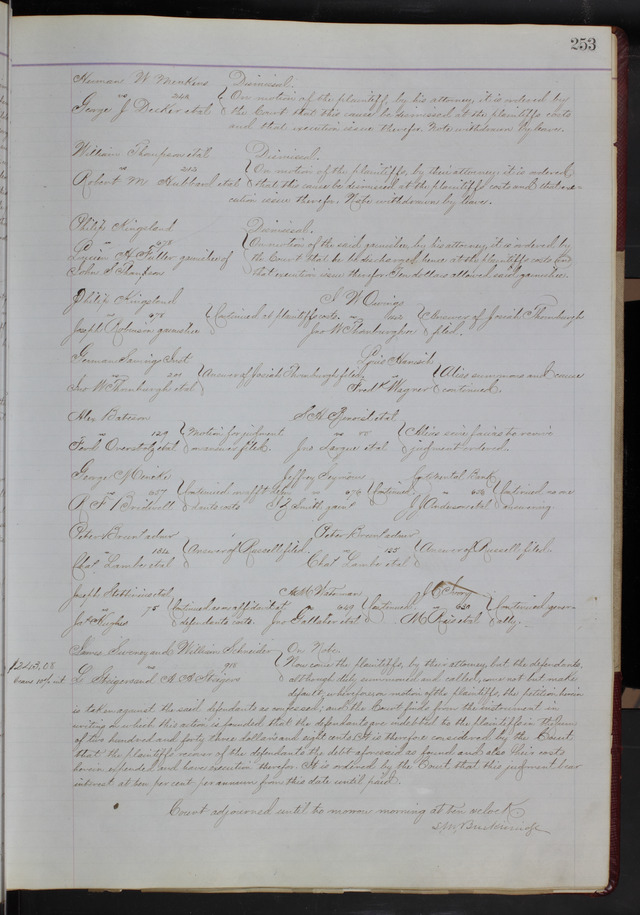 253
Herman W Menkens Dismissal.
vs 242 On motion of the plaintiff, by his attorney, it is ordered by
George J Decker et al the Court that this cause be dismissed at the plaintiffs costs
and that execution issue therefor. Note withdrawn by leave.
William Thompson et al Dismissal.
vs 252 On motion of the plaintiffs, by their attorney, it is ordered
Robert M Hubbard et al that this cause be dismissed at the plaintiffs costs and that exe-
cution issue therefor. Note withdrawn by leave.
Philip Kingsland Dismissal.
vs 278 On motion of the said garnishee, by his attorney, it is ordered by
Lucien A Fuller garnishee of the Court that he be discharged hence at the plaintiffs costs and
John S Thompson that execution issue therefor. Ten dollars allowed said garnishee.
Philip Kingsland S W
vs 278 Continued at plaintiffs costs. vs Answer of Josiah Thornburgh
Joseph garnishee Jno W Thornburgh filed.
German Savings Inst Louis
vs 201 Answer of Josiah Thornburgh filed vs Alias summons and cause
Jno W Thornburgh et al Fredk Wagner continued.
Alex Bateson S H et al
vs 129 Motion for judgment vs Alias scire facias to revive
et al on answer filed. Jno Largue et al judgment ordered.
George Jeffrey Seymour Bank
vs 257 Continued vs 276 Continued. vs Continued no
R F Bridwell costs Smith garnt J Anderson et al
Peter Brown admr Peter Brown admr
vs 124 Answer of Russell filed. vs 125 Answer of Russell filed.
Chas Lambe et al Chas Lambe et al
Joseph et al
vs 75 Continued on affidavit at vs 649 Continued vs 650 Continued gener-
Hughes defendants costs. Jno Gallaher et al M et al ally.
James Sweney and William Schneider On Note
$243.08 vs 918 Now come the plaintiffs, by their attorney, but the defendants,
bears 10% int G Steigers and A A Steigers although duly summoned and called, come not but make
default; wherefore on motion of the plaintiffs, the petition herein
is taken against the said defendants as confessed; and the Court finds from the instrument in
writing on which this action is founded that the defendants are indebted to the plaintiffs in the sum
of two hundred and forty three dollars and eight cents. It is therefore considered by the Court
that the plaintiffs recover of the defendants the debt aforesaid as found and also their costs
herein expended and have execution therefor. It is ordered by the Court that this judgment bear
interest at ten per cent per annum from this date until paid.
Court adjourned until to morrow morning at ten oclock
S M Breckinridge